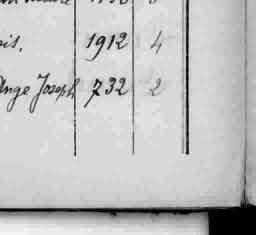 ois. 1912 4
Ange Joseph 732 2